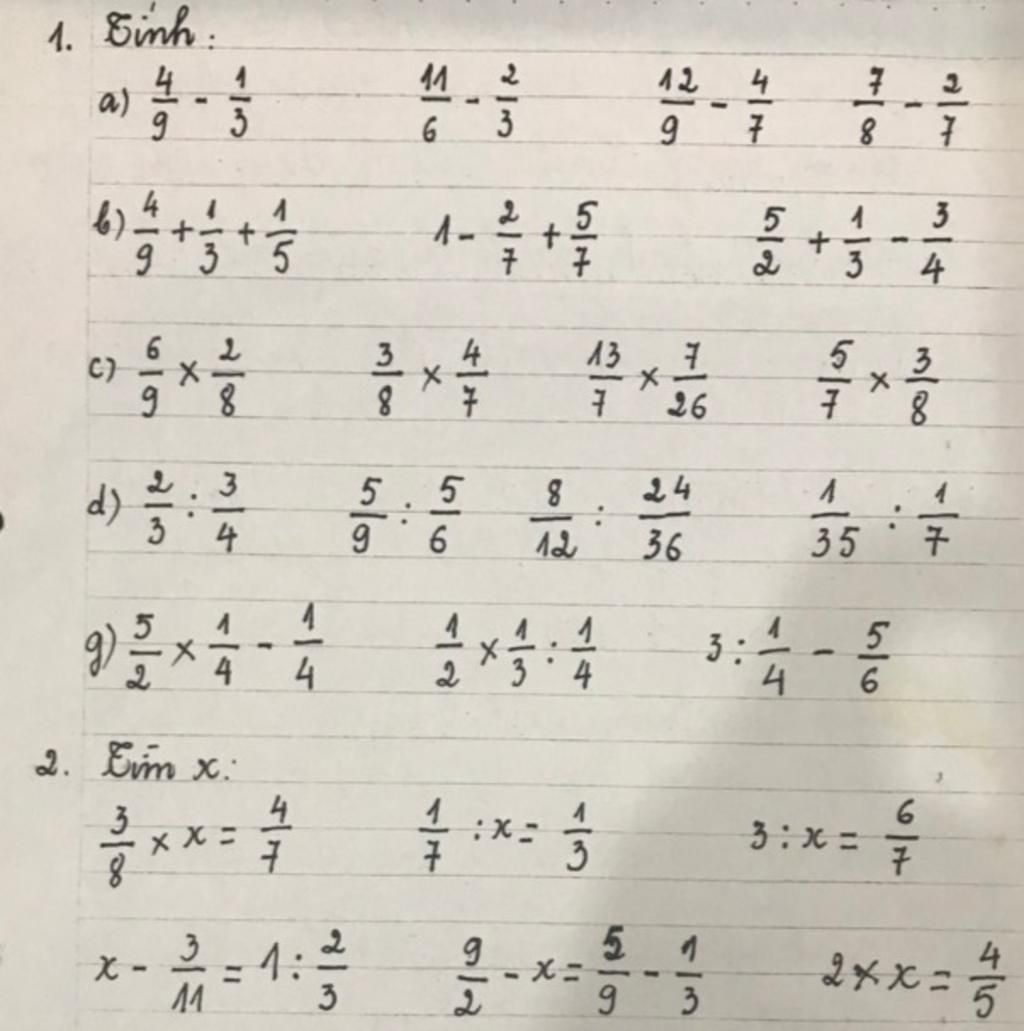 1. Tính:
a) 4/9 - 1/3 11/6 - 2/3 12/9 - 4/7 7/8 - 2/7
b) 4/9 + 1/3 + 1/5 1 - 2/7 + 5/7 5/2 + 1/3 - 3/4
c) 6/9 × 2/8 3/8 × 4/7 13/7 × 7/26 5/7 × 3/8
d) 2/3 : 3/4 5/9 : 5/6 8/12 : 24/36 1/35 : 1/7
g) 5/2 × 1/4 - 1/4 1/2 × 1/3 : 1/4 3 : 1/4 - 5/6
2. Tìm x:
3/8 × x = 4/7 1/7 : x = 1/3 3 : x = 6/7
x - 3/11 = 1 : 2/3 9/2 - x = 5/9 - 1/3 2 × x = 4/5